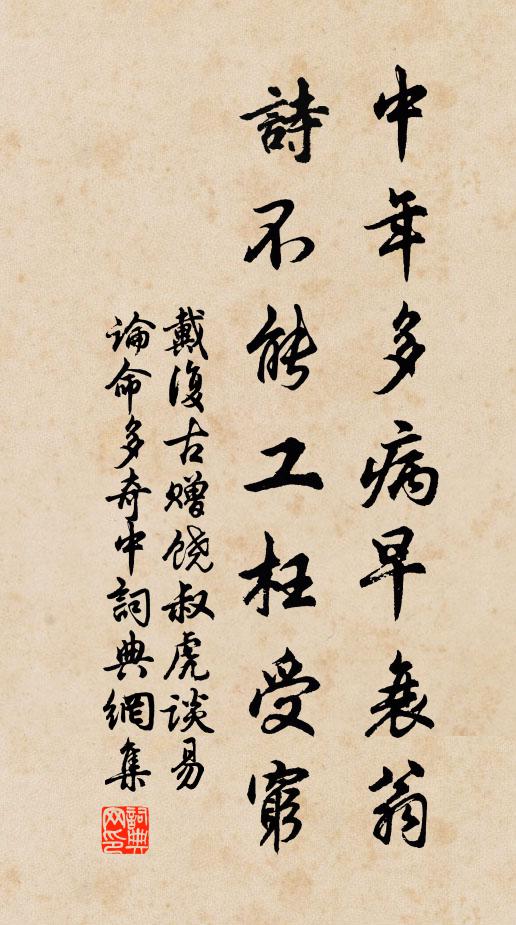 中年多病早衰翁
詩不能工枉受窮
戴復古贈饒叔虎談易
論命多奇中詞典網集
詞典网印